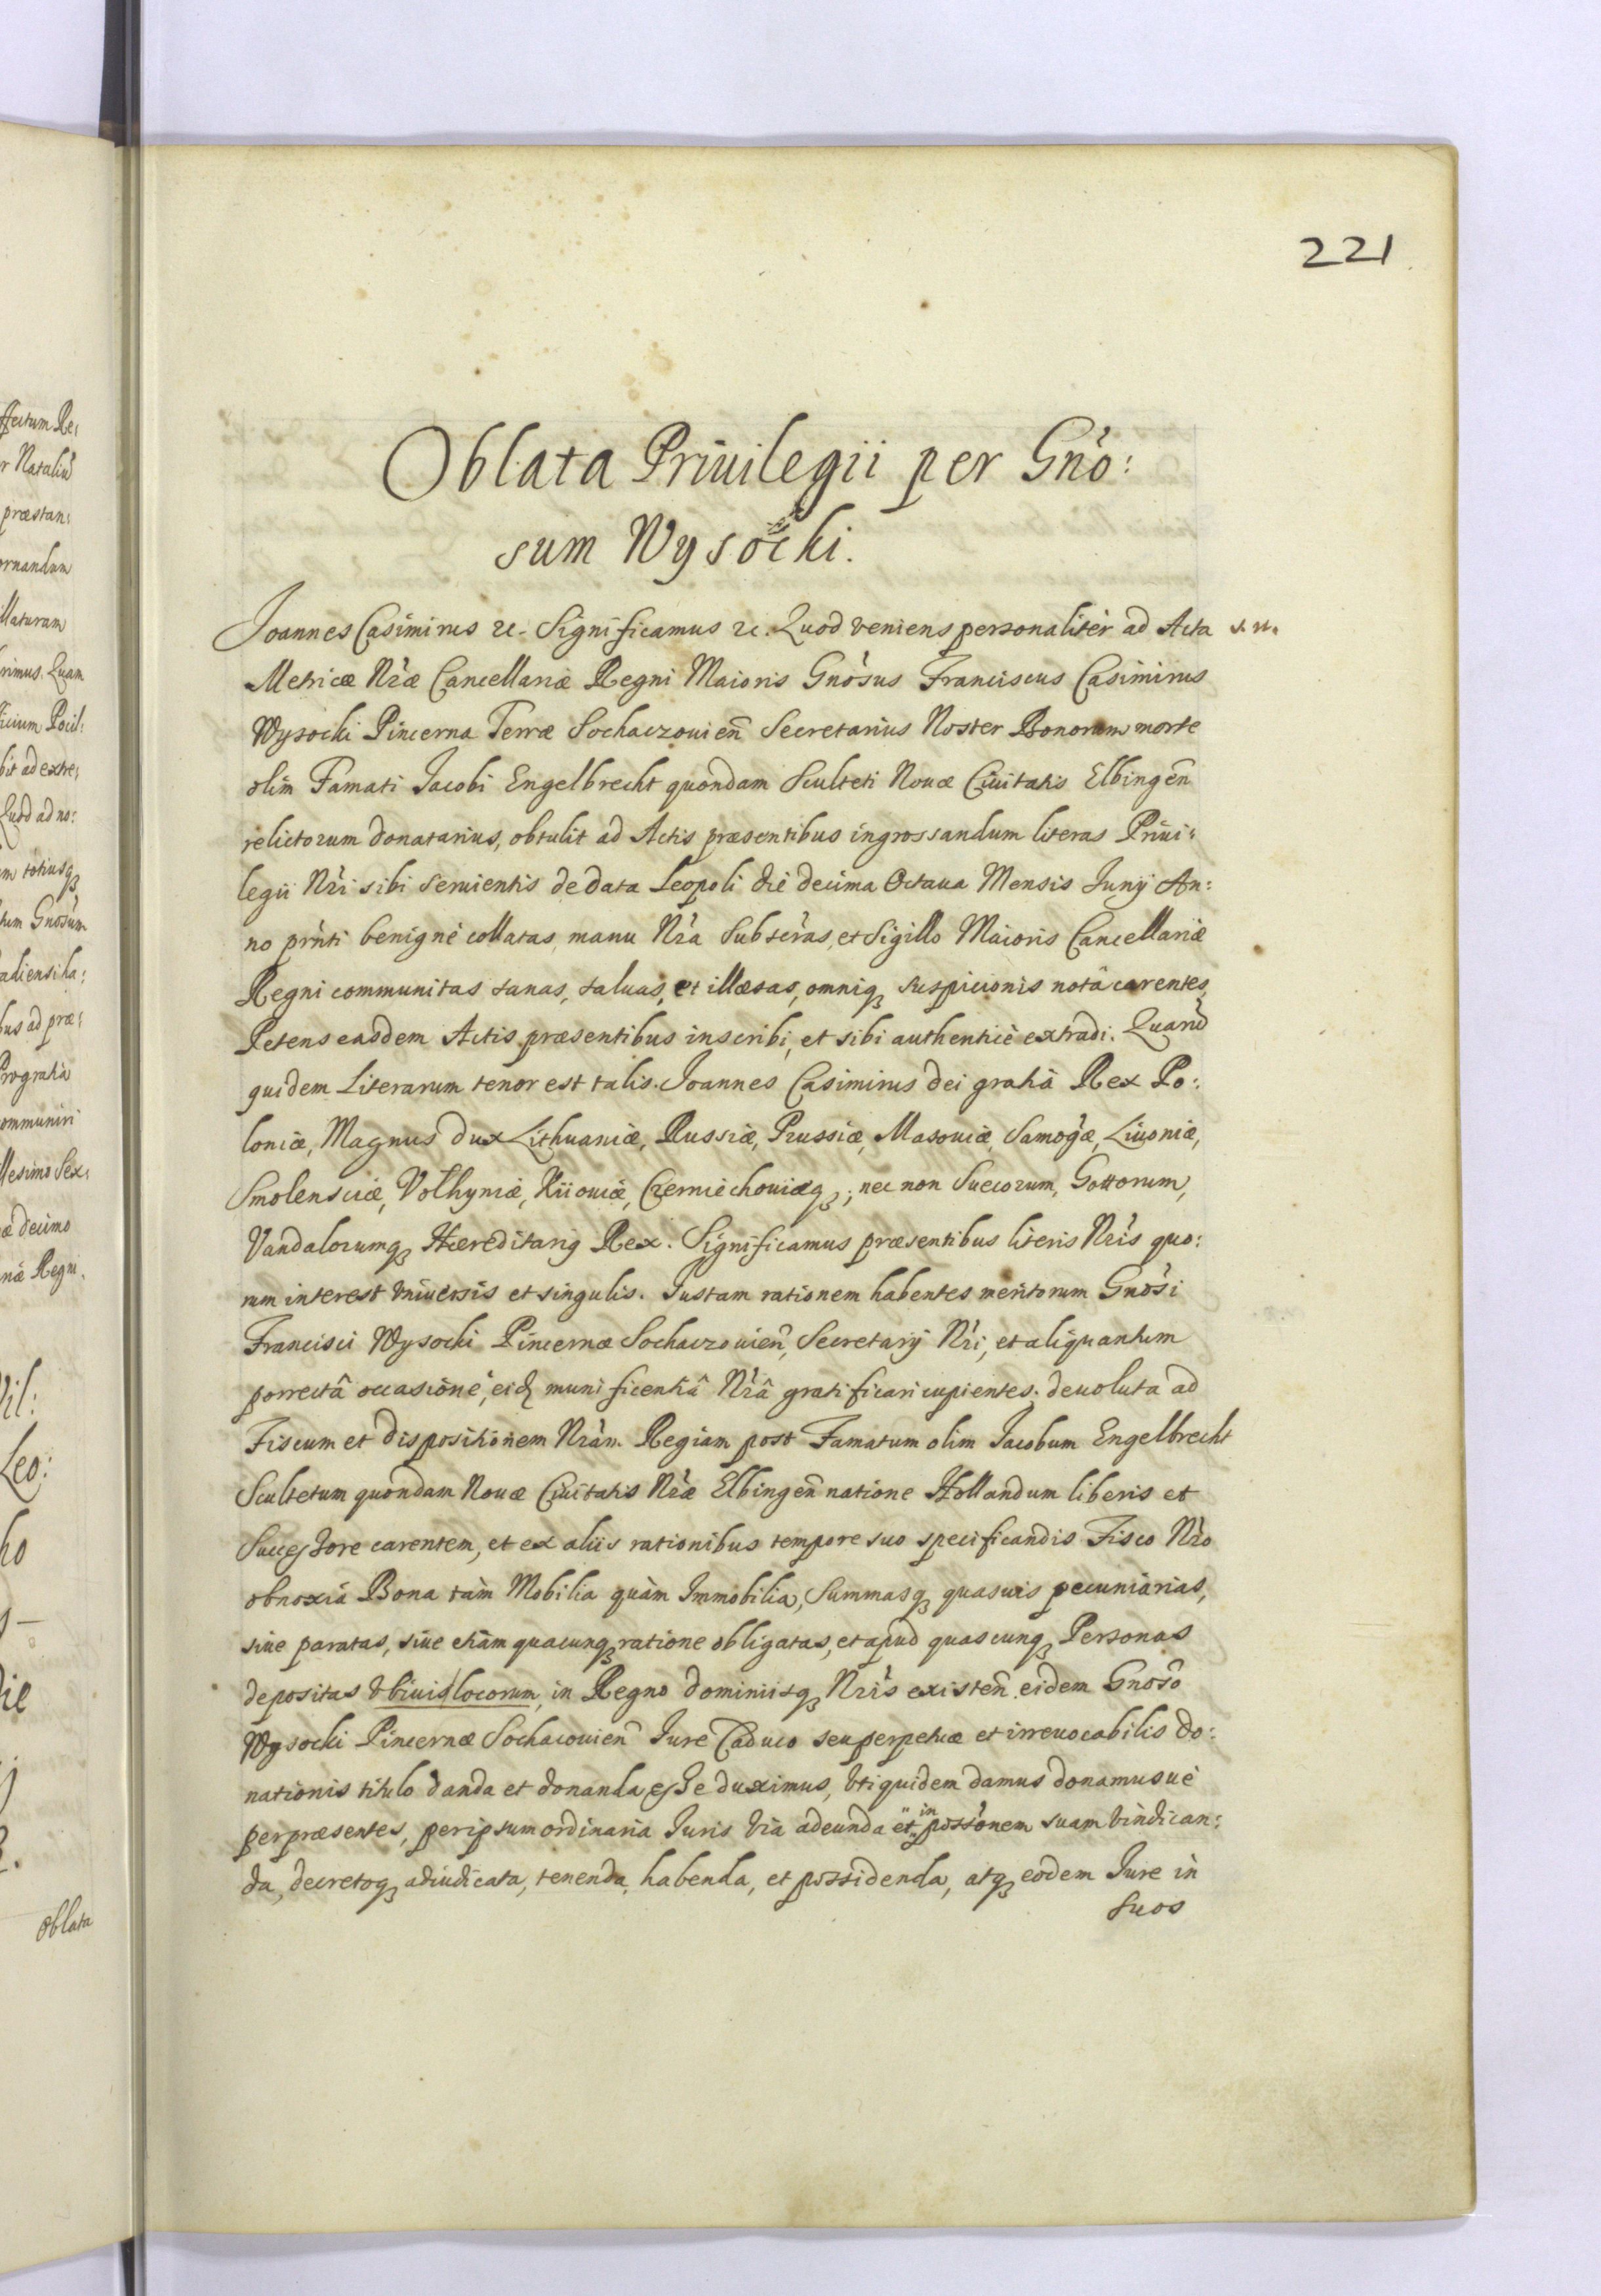 221
Oblata Priuilegii per Gnò:
sum Wysocki.
Joannes Casimirus etc. Significamus etc. Quod veniens personalitèr ad Acta
Metricæ Nræ Cancellariæ Regni Maioris Gnòsus Franciscus Casimirus
Wysocki Pincerna Terræ Sochaczouien̄ Secretarius Noster Bonorum morte
olim Famati Jacobi Engelbrecht quondam Sculteti Nouæ Ciuitatis Elbingen̄
relictorum donatarius, obtulit ad Actis præsentibus ingrossandum literas Priui:
legii Nri sibi seruientis de data Leopoli diè decima Octaua Mensis Junÿ An:
no prn̄ti benignè collatas, manu Nrà Subscras, et Sigillo Maioris Cancellariæ
Regni communitas sanas, saluas, et illæsas, omniq; suspicionis notâ carentes,
Petens easdem Actis præsentibus inscribi, et sibi authenticè extradi. Quarū
quidem Literarum tenor est talis. Joannes Casimirus dei gratiâ Rex Po:
loniæ, Magnus dux Lithuaniæ, Russiæ, Prussiæ, Masouiæ, Samogæ, Liuoniæ,
Smolensciæ, Volhyniæ, Kiiouiæ, Czerniechouiæq;, nec non Suecorum, Gottorum,
Vandalorumq; Hæreditarÿ Rex. Significamus præsentibus literis Nrìs quo:
rum interest vniuersis et singulis. Justam rationem habentes meritorum Gnòsi
Francisci Wysocki Pincernæ Sochaczouien̄, Secretarÿ Nri, et aliquantum
porrectâ occasione, eid; munificentiâ Nrâ gratificari cupientes; deuoluta ad
Fiscum et dispositionem Nràm Regiam post Famatum olim Jacobum Engelbrecht
Scultetum quondam Nouæ Ciuitatis Nræ Elbingen̄ natione Hollandum liberis et
Successore carentem, et ex aliis rationibus tempore suo specificandis Fisco Nrò
obnoxiâ Bona tàm Mobilia quàm Immobilia, Summasq; quasuis pecuniarias,
siue paratas, siue etiàm quacunq; ratione obligatas, et apud quascunq; Personas
depositas vbiuis locorum, in Regno dominiisq; Nrìs existen̄ eidem Gnòso
Wysocki Pincernæ Sochacouien̄ Jure Caduco seu perpetuæ et irreuocabilis do:
nationis titulo danda et donanda esse duximus, vti quidem damus donamusuè
per præsentes, per ipsum ordinaria Juris via adeunda et in possonem suam vindican:
da, decretoq; adiudicata, tenenda, habenda, et possidenda, atq; eodem Jure in
suos